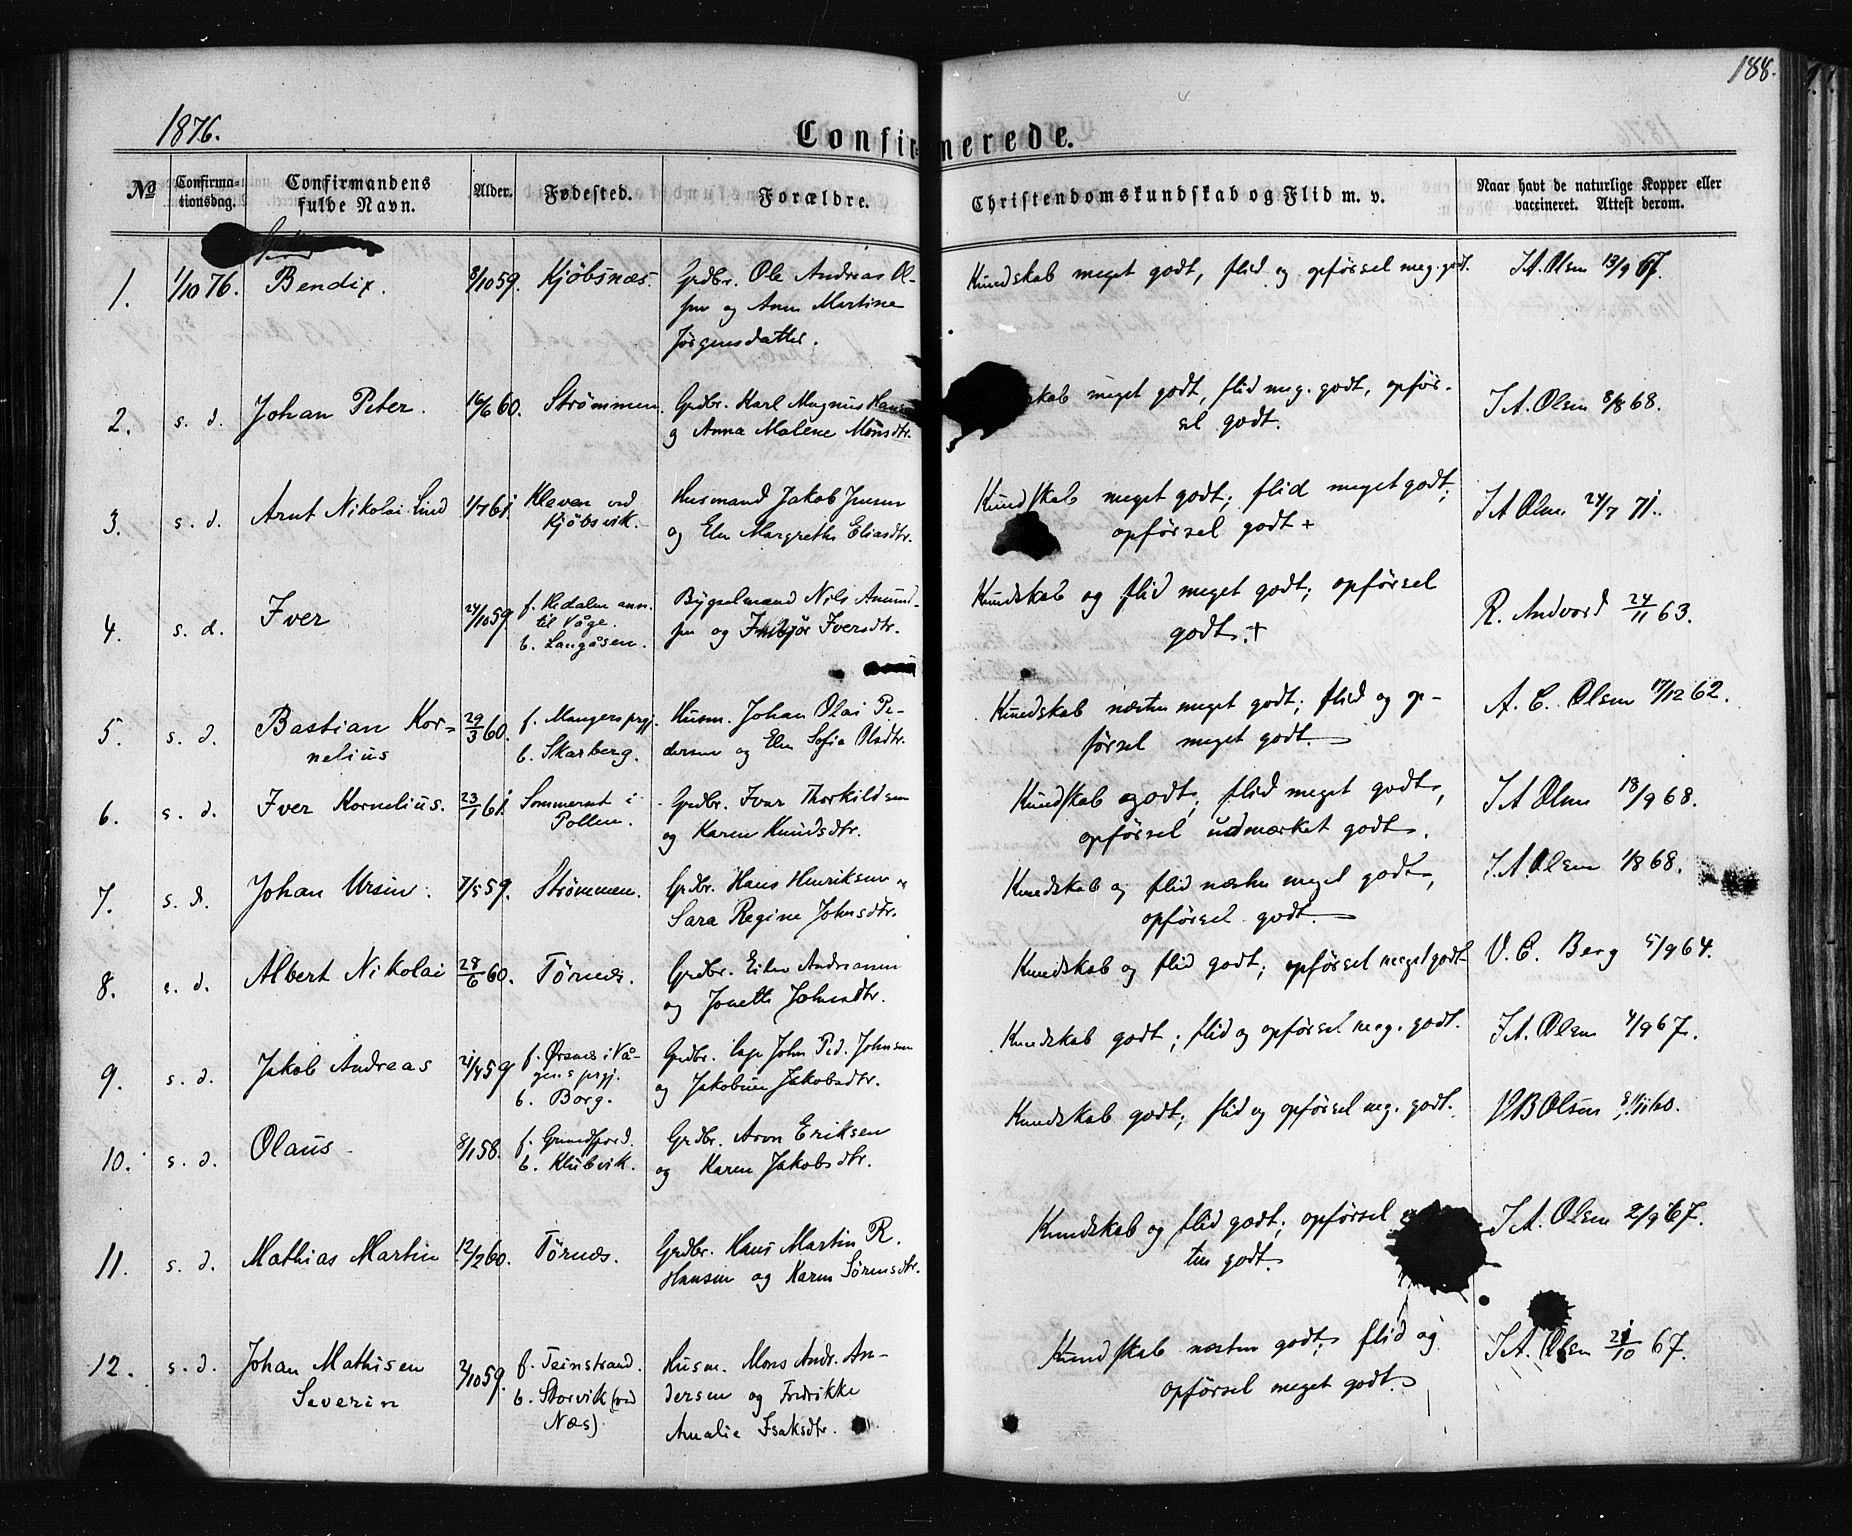 188.
1876.
Confirmerede.
No
Confirma-
tionsdag.
Confirmandens
fulde Navn.
Alder.
Fødested.
Forældre.
Christendomskundskab og Flid m. v.
Naar havt de naturlige Kopper eller
vaccineret. Attest derom.
1. 1/10 76. Bendix. 8/10 59. Kjöbsnæs. Grdbr. Ole Andreas Ol- Kundskab meget godt, flid og opförsel meg. godt. I.A. Olsen 13/9 67.
sen og Anne Martine
Jörgensdatter.
2. s. d. Johan Peter. 16/6 60. Strömmen. Grdbr. Karl Magnus Hansen skab meget godt, flid meg. godt, opför- I A. Olsen 8/8 68.
og Anna Malene Mönsdtr. sel godt.
3. s. d. Arnt Nikolai Lind 1/7 61. Kleven ved Husmand Jakob Jensen Kundskab meget godt; flid meget godt; I A Olsen 24/7 71.
Kjöbsvik. og Elen Margrethe Eliasdtr. opförsel godt +
4. s. d. Iver 24/10 59. f. Hedalen ann. Bygselmand Nils Amund- Kundskab og flid meget godt; opförsel R. Andvord 24/11 63.
til Våge. sen og Iversdtr. godt. +
b. Langåsen.
5. s. d. Bastian Kor- 29/3 60. f. Mangers prgj. Husm. Johan Olai Pe- Kundskab næsten meget godt; flid og op- A. C. Olsen 17/12 62.
nelius b. Skarberg. dersen og Elen Sofia Olsdtr. försel meget godt.
6. s. d. Iver Kornelius. 23/1 61. Sommerset i Grdbr. Ivar Thorkildsen Kundskab godt, flid meget godt, I A Olsen 18/9 68.
Pollen. og Karen Knudsdtr. opförsel udmærket godt.
7. s. d. Johan Ursin. 7/5 59. Strömmen. Grdbr. Hans Henriksen og Kundskab og flid næsten meget godt, I. A. Olsen 1/8 68.
Sara Regine Johnsdtr. opförsel godt.
8. s. d. Albert Nikolai 28/6 60. Törnæs. Grdbr. Eiler Andreasen Kundskab og flid godt; opförsel meget godt V. C. Berg 5/9 64.
og Jonette Johnsdtr.
9. s. d. Jakob Andreas 21/4 59 f. Örsnes i Vå- Grdbr. John Ped. Johnsen Kundskab godt; flid og opförsel meg. godt. I. A. Olsen 4/9 67.
gens prgj. og Jakobine Jakobsdtr.
b. Borg.
10. s. d. Olaus 8/1 58. f. Grundfjord. Grdbr. Aron Eriksen Kundskab godt; flid og opförsel meg. godt. Olsen 60.
b. Klubvik. og Karen Jakobsdtr.
11. s. d. Mathias Martin 12/2 60. Törnæs. Grdbr. Hans Martin R. Kundskab og flid godt; opförsel I. A. Olsen 2/9 67.
Hansen og Karen Sörensdtr. ten godt.
12. s. d. Johan Mathisen 2/10 59. f. Teinstrand. Husm. Mons Andr. An- Kundskab næsten godt; flid og I. A. Olsen 21/10 67.
Severin b. Storvik (ved dersen og Fredrikke opförsel meget godt.
Næs). Amalie Isaksdtr.